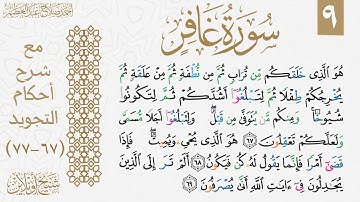 ٩
سُورَةُ غَافِرٍ
مع
شرح
أحكام
التجويد
(٦٧-٧٧)
هُوَ ٱلَّذِى خَلَقَكُم مِّن تُرَابٍ ثُمَّ مِن نُّطْفَةٍ ثُمَّ مِنْ عَلَقَةٍ ثُمَّ
يُخْرِجُكُمْ طِفْلًا ثُمَّ لِتَبْلُغُوٓا۟ أَشُدَّكُمْ ثُمَّ لِتَكُونُوا۟
شُيُوخًا ۚ وَمِنكُم مَّن يُتَوَفَّىٰ مِن قَبْلُ ۖ وَلِتَبْلُغُوٓا۟ أَجَلًا مُّسَمًّى
وَلَعَلَّكُمْ تَعْقِلُونَ ٦٧ هُوَ ٱلَّذِى يُحْىِۦ وَيُمِيتُ ۖ فَإِذَا
قَضَىٰٓ أَمْرًا فَإِنَّمَا يَقُولُ لَهُۥ كُن فَيَكُونُ ٦٨ أَلَمْ تَرَ إِلَى ٱلَّذِينَ
يُجَـٰدِلُونَ فِىٓ ءَايَـٰتِ ٱللَّهِ أَنَّىٰ يُصْرَفُونَ ٦٩